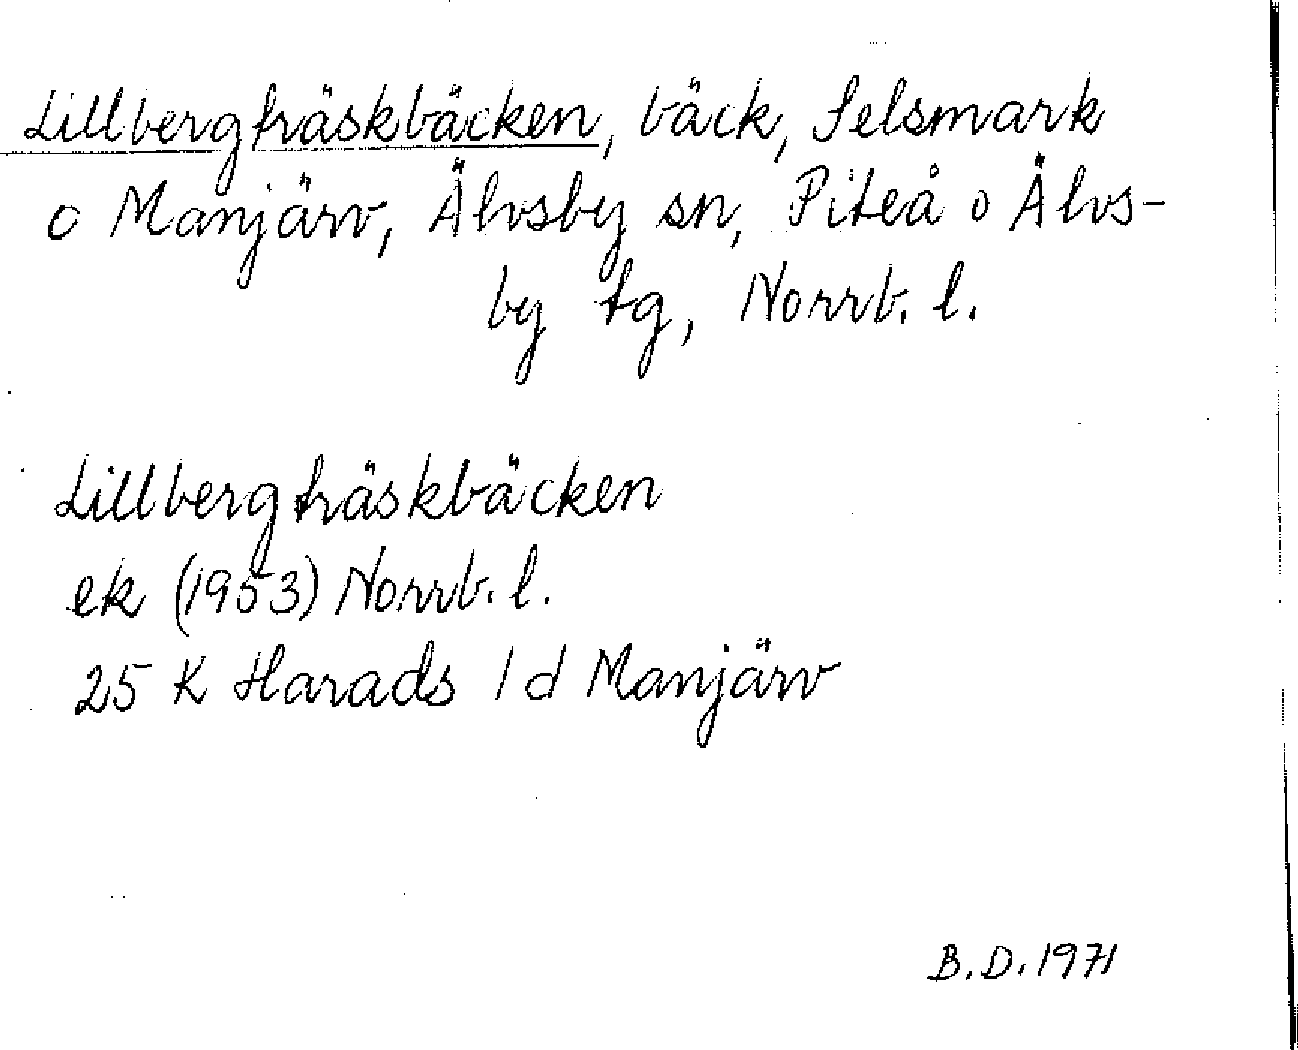 Lillbergträskbäcken, bäck, Selsmark
o Manjärv, Älvsby sn, Piteå o Älvs-
by tg, Norrb. l.
Lillbergträskbäcken
ek (1953) Norrb. l.
25 K Harads 1 d Manjärv
B.D. 1971